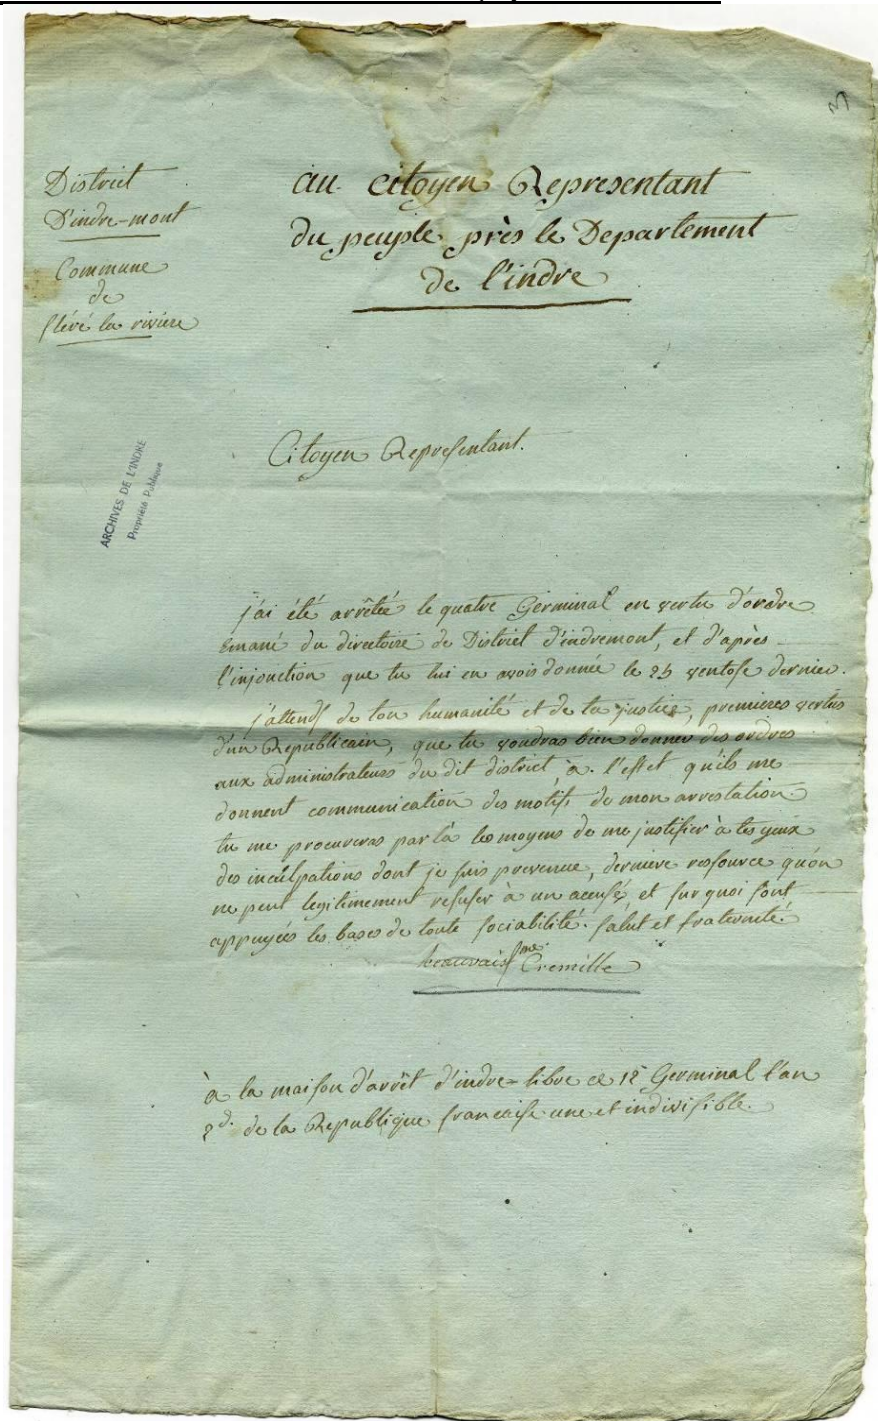 3
District
D'indre-mont
Commune
de
fléré la riviere
au citoyen Representant
du peuple près le Departement
de l'indre
ARCHIVES DE L'INDRE
Propriété Publique
Citoyen Representant.
j'ai été arrêtée le quatre Germinal en vertu d'ordre
émané du directoire de District d'indremont, et d'après
l'injonction que tu lui en avois donnée le 25 ventose dernier.
j'attends de ton humanité et de ta justice, premieres vertus
d'un Republicain, que tu voudras bien donner des ordres
aux administrateurs du dit district à l'effet qu'ils me
donnent communication des motifs de mon arrestation
tu me procureras par là les moyens de me justifier à tes yeux
des inculpations dont je suis prevenue, derniere ressource qu'on
ne peut legitimement refuser à un accusé, et sur quoi sont
appuyées les bases de toute sociabilité. salut et fraternité
beauvais fme Cremille
à la maison d'arrêt d'indre-libre ce 12 Germinal l'an
2d. de la Republique francaise une et indivisible.